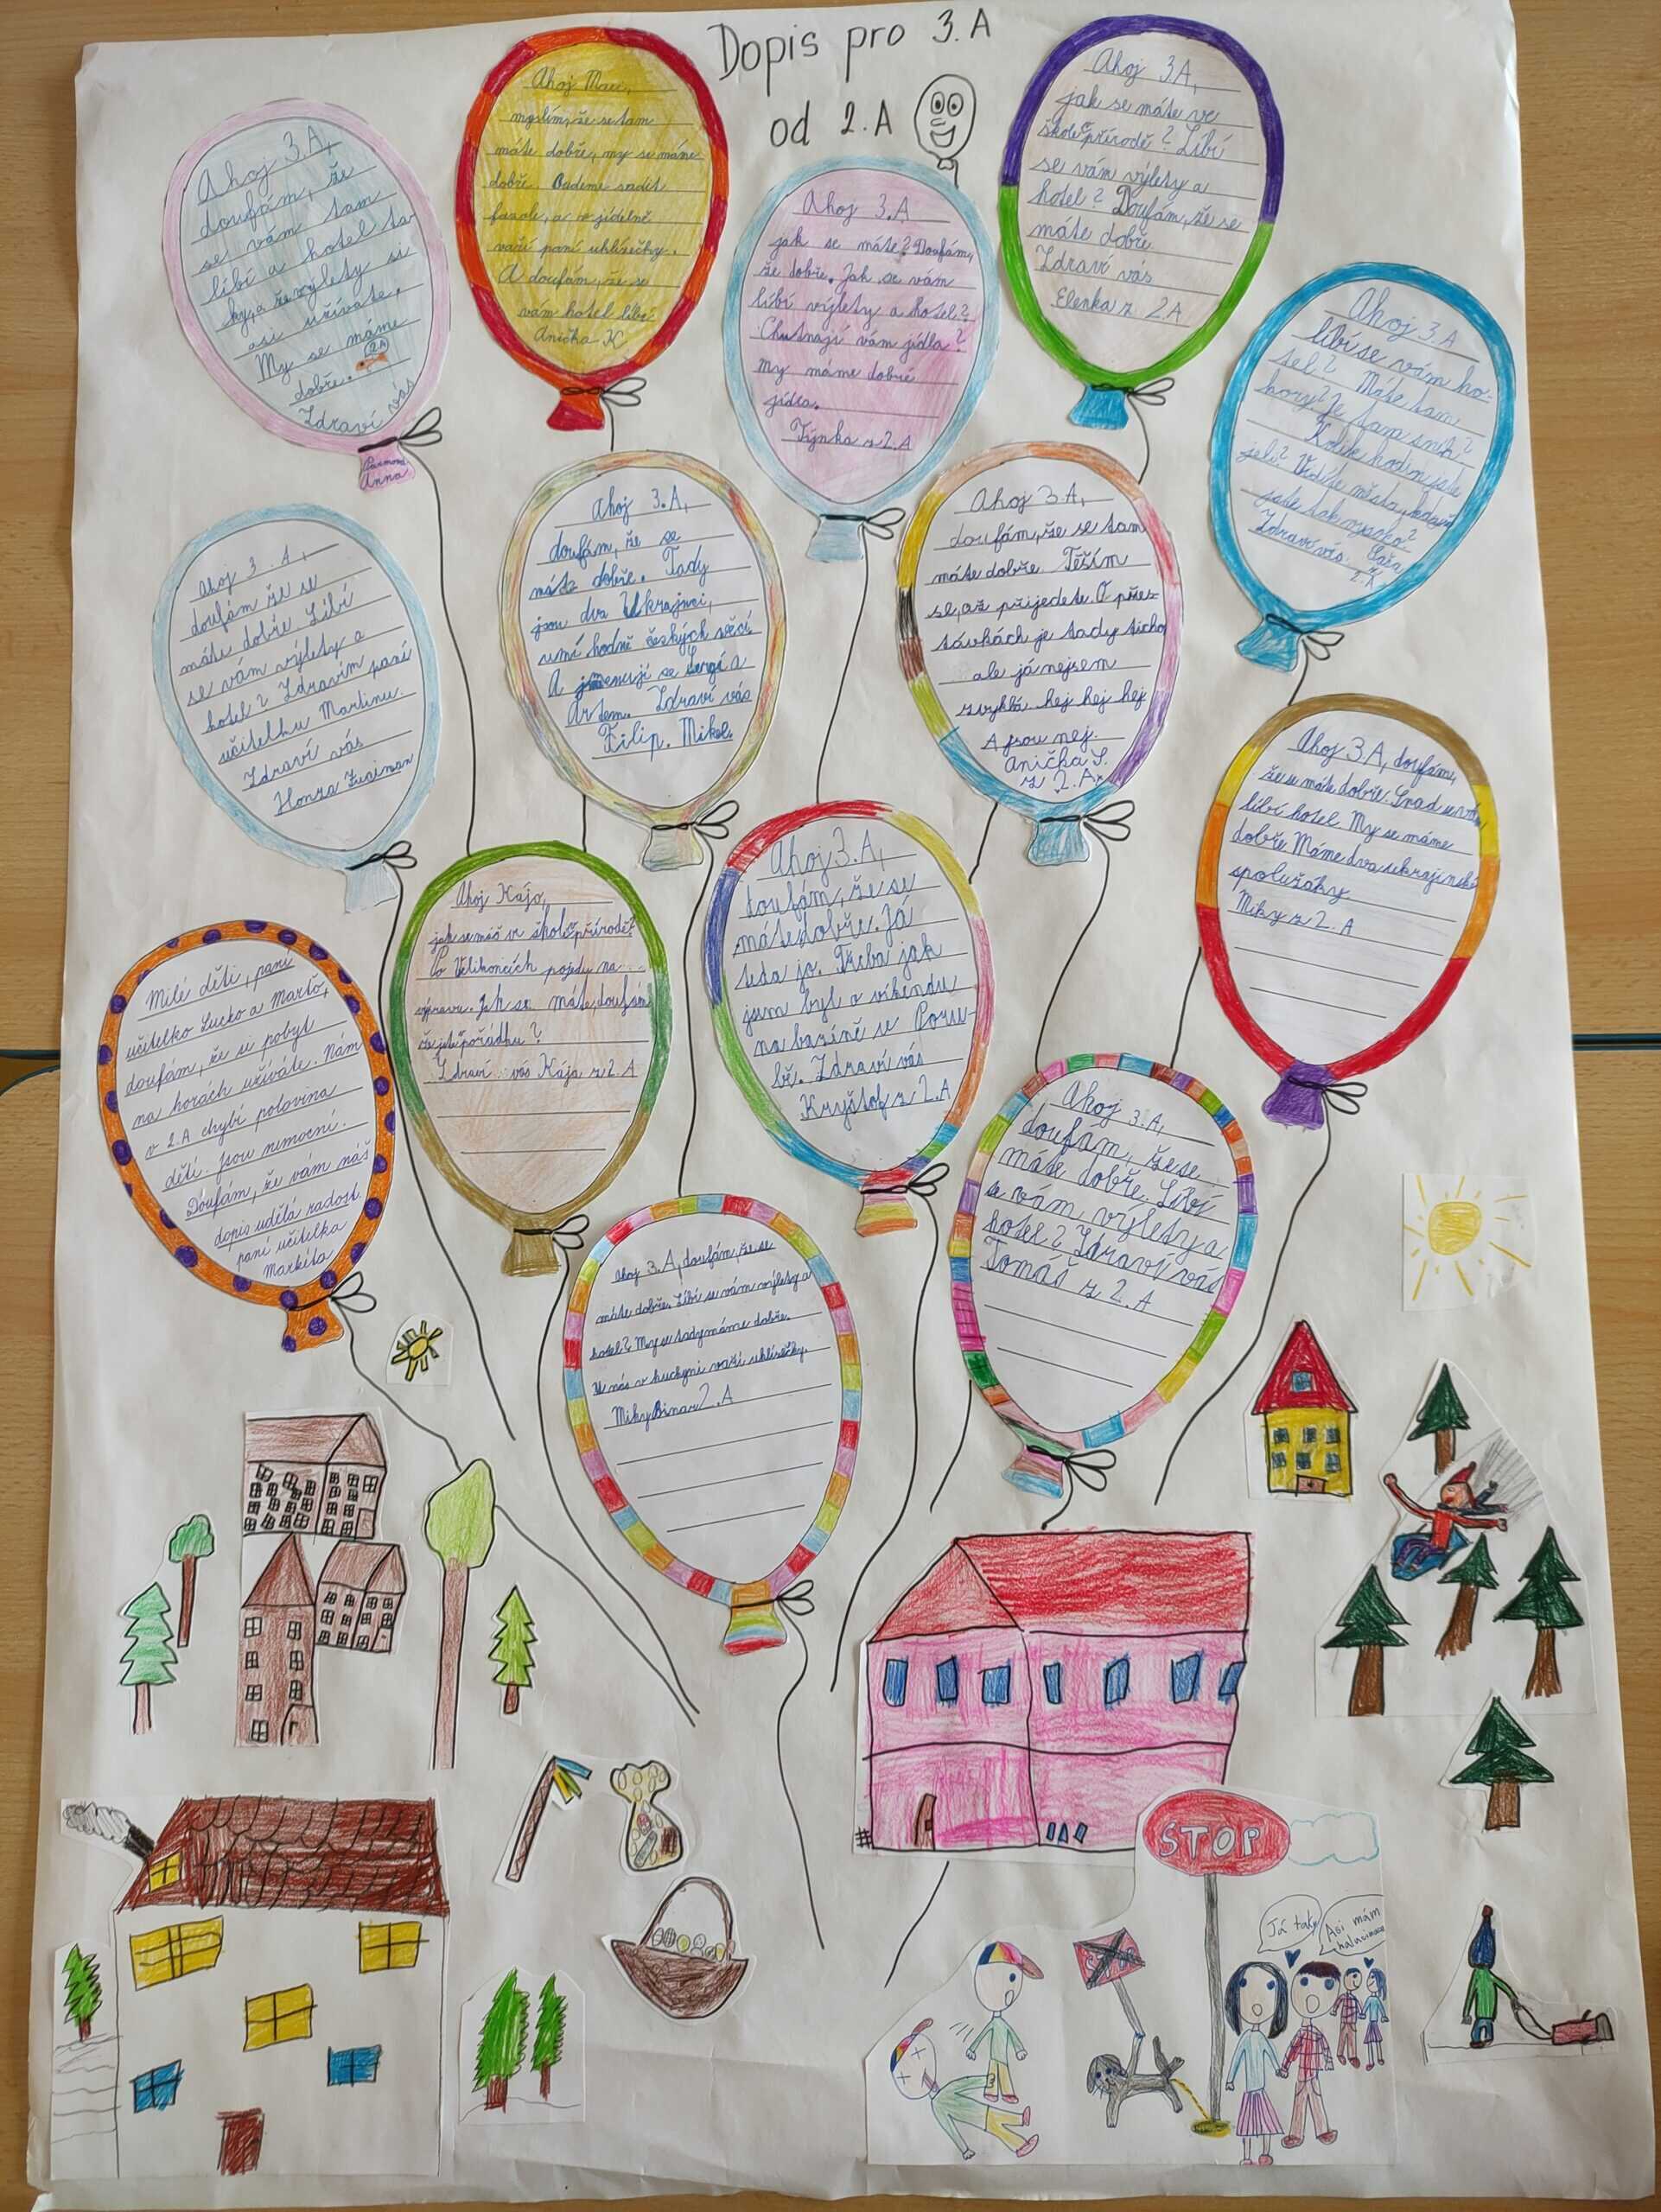 Dopis pro 3.A
od 2.A
Ahoj 3.A,
doufám, že
se vám tam
líbí a hotel ta
ky, a že výlety si
asi užíváte.
My se máme
dobře. 2A
Zdraví vás
Anna
Ahoj Maxi,
myslím, že se tam
máte dobře, my se máme
dobře. Budeme sadit
fazole, a v jídelně
vaří paní uklízečky.
A doufám, že se
vám hotel líbí.
Anička K
Ahoj 3.A
jak se máte? Doufám,
že dobře. Jak se vám
líbí výlety a hotel?
Chutnají vám jídla?
My máme dobré
jídla.
Týnka z 2.A
Ahoj 3A,
jak se máte ve
škole v přírodě? Líbí
se vám výlety a
hotel? Doufám, že se
máte dobře.
Zdraví vás
Elenka z 2A
Ahoj 3A
líbí se vám ho-
tel? Máte tam
hory? Je tam sníh?
Kolik hodin jste
jeli? Vidíte města, když
jste tak vysoko?
Zdraví vás
Ahoj 3.A,
doufám že se
máte dobře. Líbí
se vám výlety a
hotel? Zdravím paní
učitelku Martinu.
Zdraví vás
Honza
Ahoj 3.A,
doufám, že se
máte dobře. Tady
jsou dva Ukrajinci,
umí hodně českých věcí.
A jmenují se Sergi a
Artem. Zdraví vás
Filip. Mikol.
Ahoj 3.A,
doufám, že se tam
máte dobře. Těším
se, až přijedete. O přes-
távkách je tady ticho
ale já nejsem
zvyklá hej hej hej
A jsou nej.
Anička S.
z 2.A
Ahoj 3.A, doufám,
že se máte dobře. Snad se vám
líbí hotel. My se máme
dobře. Máme dva ukrajinské
spolužáky.
Miky z 2.A
Milé děti, paní
učitelko Lucko a Marťo,
doufám, že si pobyt
na horách užíváte. Nám
v 2.A chybí polovina
dětí. Jsou nemocní.
Doufám, že vám náš
dopis udělá radost.
paní učitelka
Markéta
Ahoj Kájo,
jak se máš ve škole v přírodě?
Po Velikonocích pojedu na
výpravu. Jak se máte, doufám
že jste v pořádku?
Zdraví vás Kája z 2.A
Ahoj 3.A,
doufám, že se
máte dobře. Já
teda jo. Třeba jak
jsem byl o víkendu
na bazéně ve Poru-
bě. Zdraví vás
Kryštof z 2.A
Ahoj 3.A,
doufám, že se
máte dobře. Líbí
se vám výlety a
hotel? Zdraví vás
Tomáš z 2.A
Ahoj 3.A, doufám, že se
máte dobře. Líbí se vám výlety a
hotel? My se tady máme dobře.
U nás v kuchyni vaří uklízečky.
Miky Binar 2.A
STOP
Já taky
Asi mám
halucinace
STOP